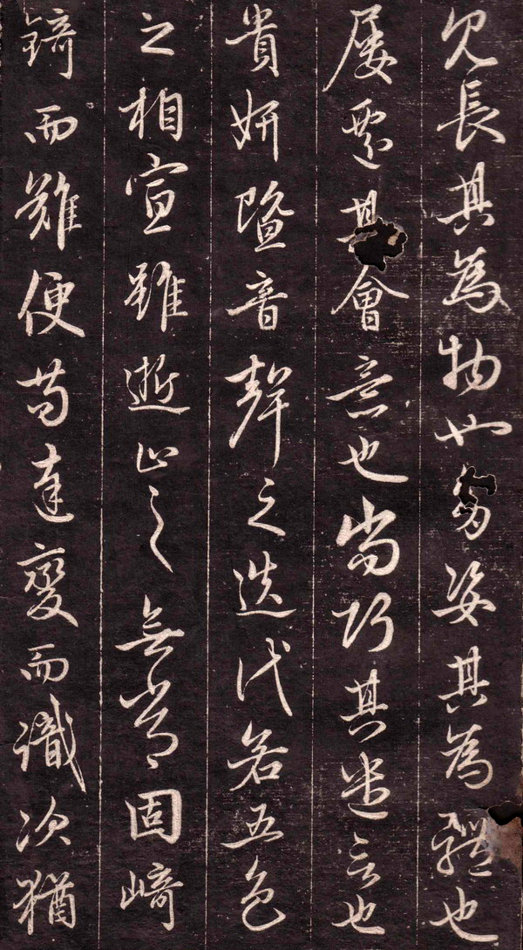 冗長其為物也多姿其為軆也
屢遷其會意也尚巧其遣言也
貴妍暨音聲之迭代若五色
之相宣雖逝止之無常固崎
錡而難便苟達變而識次猶